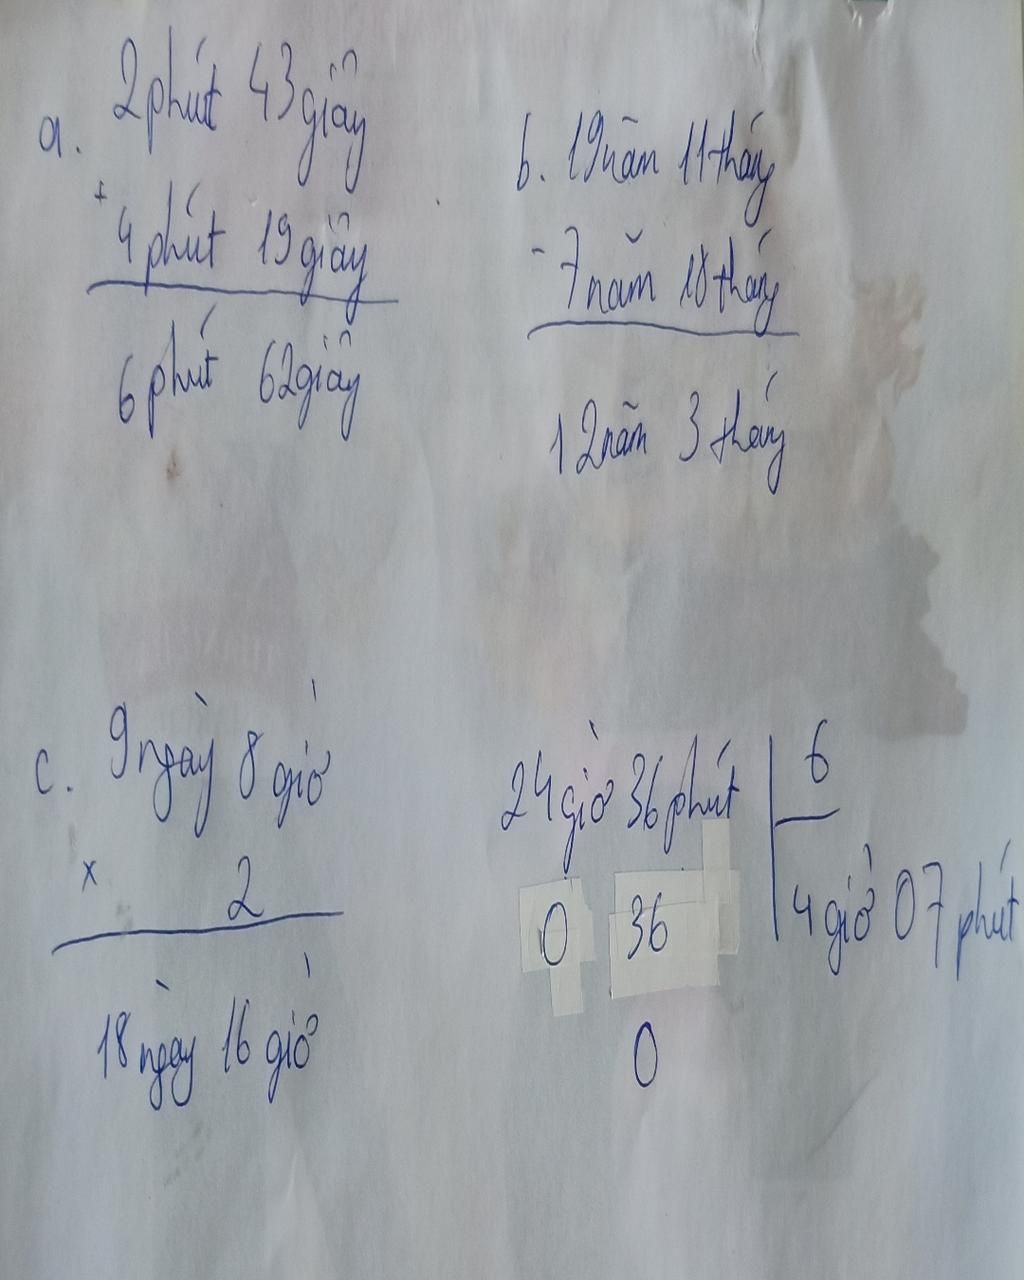 a. 2 phút 43 giây
+
4 phút 19 giây
6 phút 62 giây
b. 19 năm 11 tháng
-
7 năm 18 tháng
12 năm 3 tháng
c. 9 ngày 8 giờ
x
2
18 ngày 16 giờ
24 giờ 36 phút | 6
0 36 4 giờ 07 phút
0